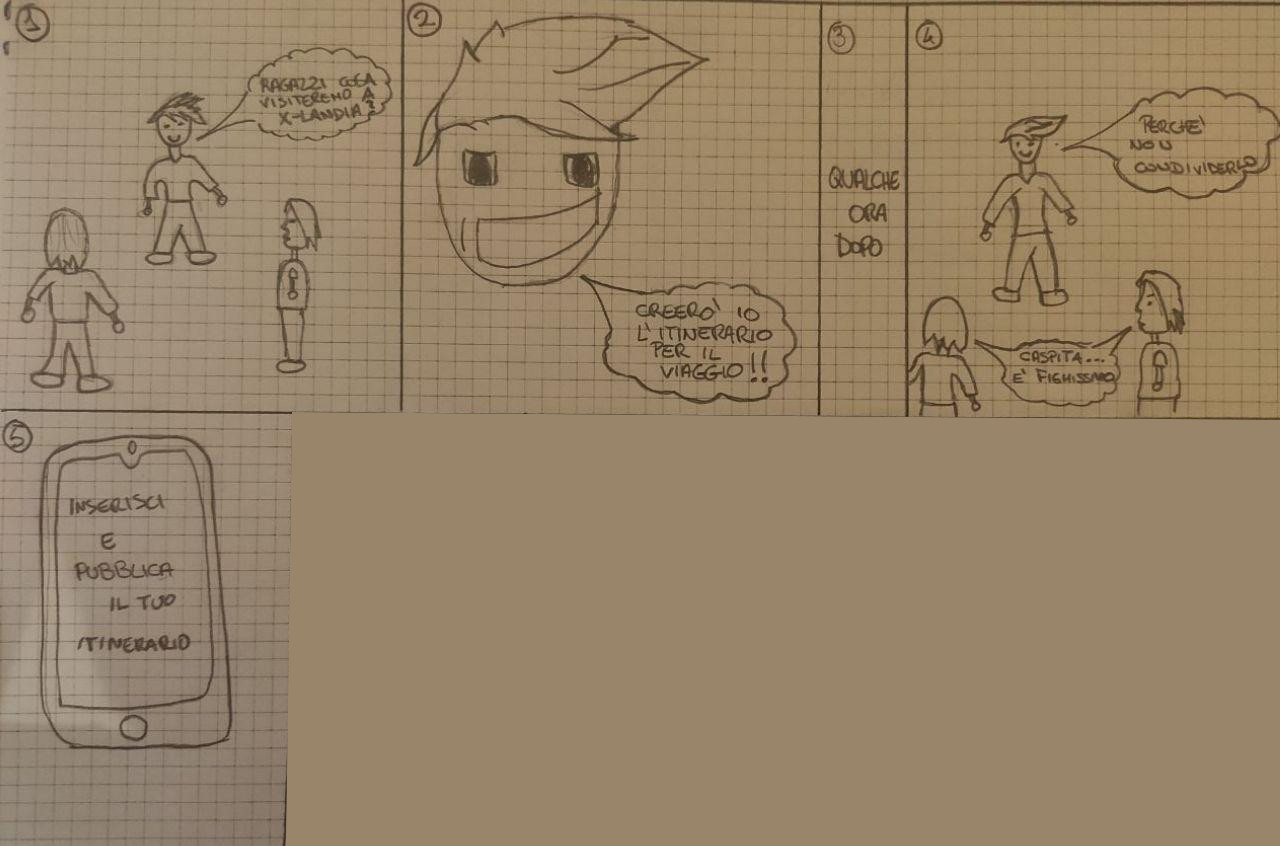 1
RAGAZZI COSA
VISITEREMO A
X-LANDIA?
2
CREERO' IO
L'ITINERARIO
PER IL
VIAGGIO!!
3
QUALCHE
ORA
DOPO
4
PERCHE'
NON
CONDIVIDERLO
CASPITA...
E' FIGHISSIMO
5
INSERISCI
E
PUBBLICA
IL TUO
ITINERARIO